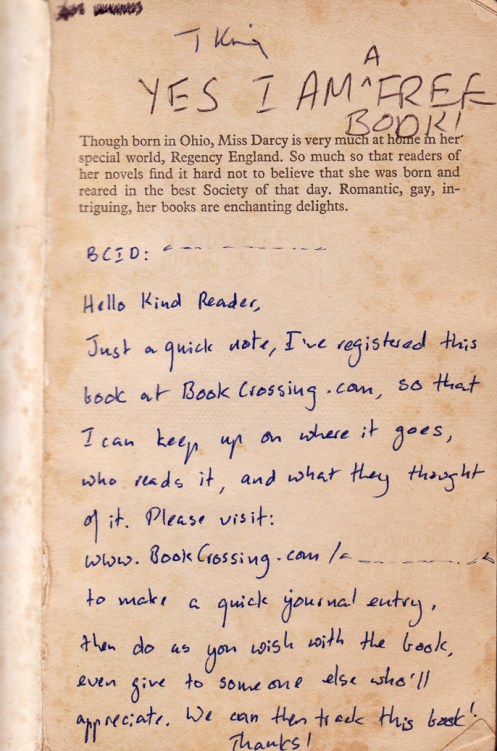 T King
YES I AM ^A FREE
BOOK!
Though born in Ohio, Miss Darcy is very much at home in her
special world, Regency England. So much so that readers of
her novels find it hard not to believe that she was born and
reared in the best Society of that day. Romantic, gay, in-
triguing, her books are enchanting delights.
BCID:
Hello Kind Reader,
Just a quick note, I've registered this
book at BookCrossing.com, so that
I can keep up on where it goes,
who reads it, and what they thought
of it. Please visit:
www.BookCrossing.com/
to make a quick journal entry,
then do as you wish with the book,
even give to someone else who'll
appreciate. We can then track this book!
Thanks!